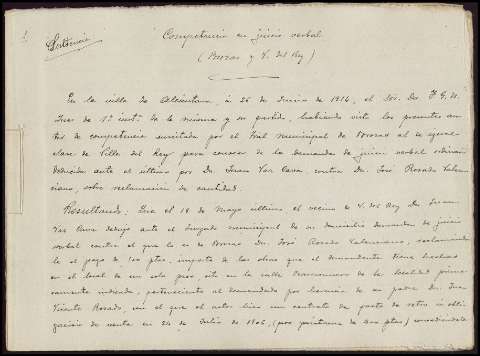 Sentencia
Competencia en juicio verbal
(Brozas y V. del Rey)
En la villa de Alcántara, á 26 de Junio de 1914, el Sor. Dn.
Juez de 1ª inst. de la misma y su partido, habiendo visto los presentes au-
tos de competencia suscitada por el Tral municipal de Brozas al de igual
clase de Villa del Rey para conocer de la demanda de juicio verbal
deducida ante el último por Dn. Juan Paz Cava contra Dn. José Rosado Valen-
ciano, sobre reclamación de cantidad.
Resultando: Que el 18 de Mayo último el vecino de V. del Rey Dn. Juan
Paz Cava dedujo ante el Juzgado municipal de su domicilio demanda de juicio
verbal contra el que lo es de Brozas Dn. José Rosado Valenciano, reclamando-
le el pago de ptas, importe de las obras que el demandante tiene hechas
en el local de un solo piso sito en la calle de la localidad prime-
ramente indicada, perteneciente al demandado por herencia de su padre Dn. Juan
Vicente Rosado, en el que el actor hizo un contrato de pacto de retro ú obli-
gación de venta en 24 de Julio de 1906, (por pesetas)